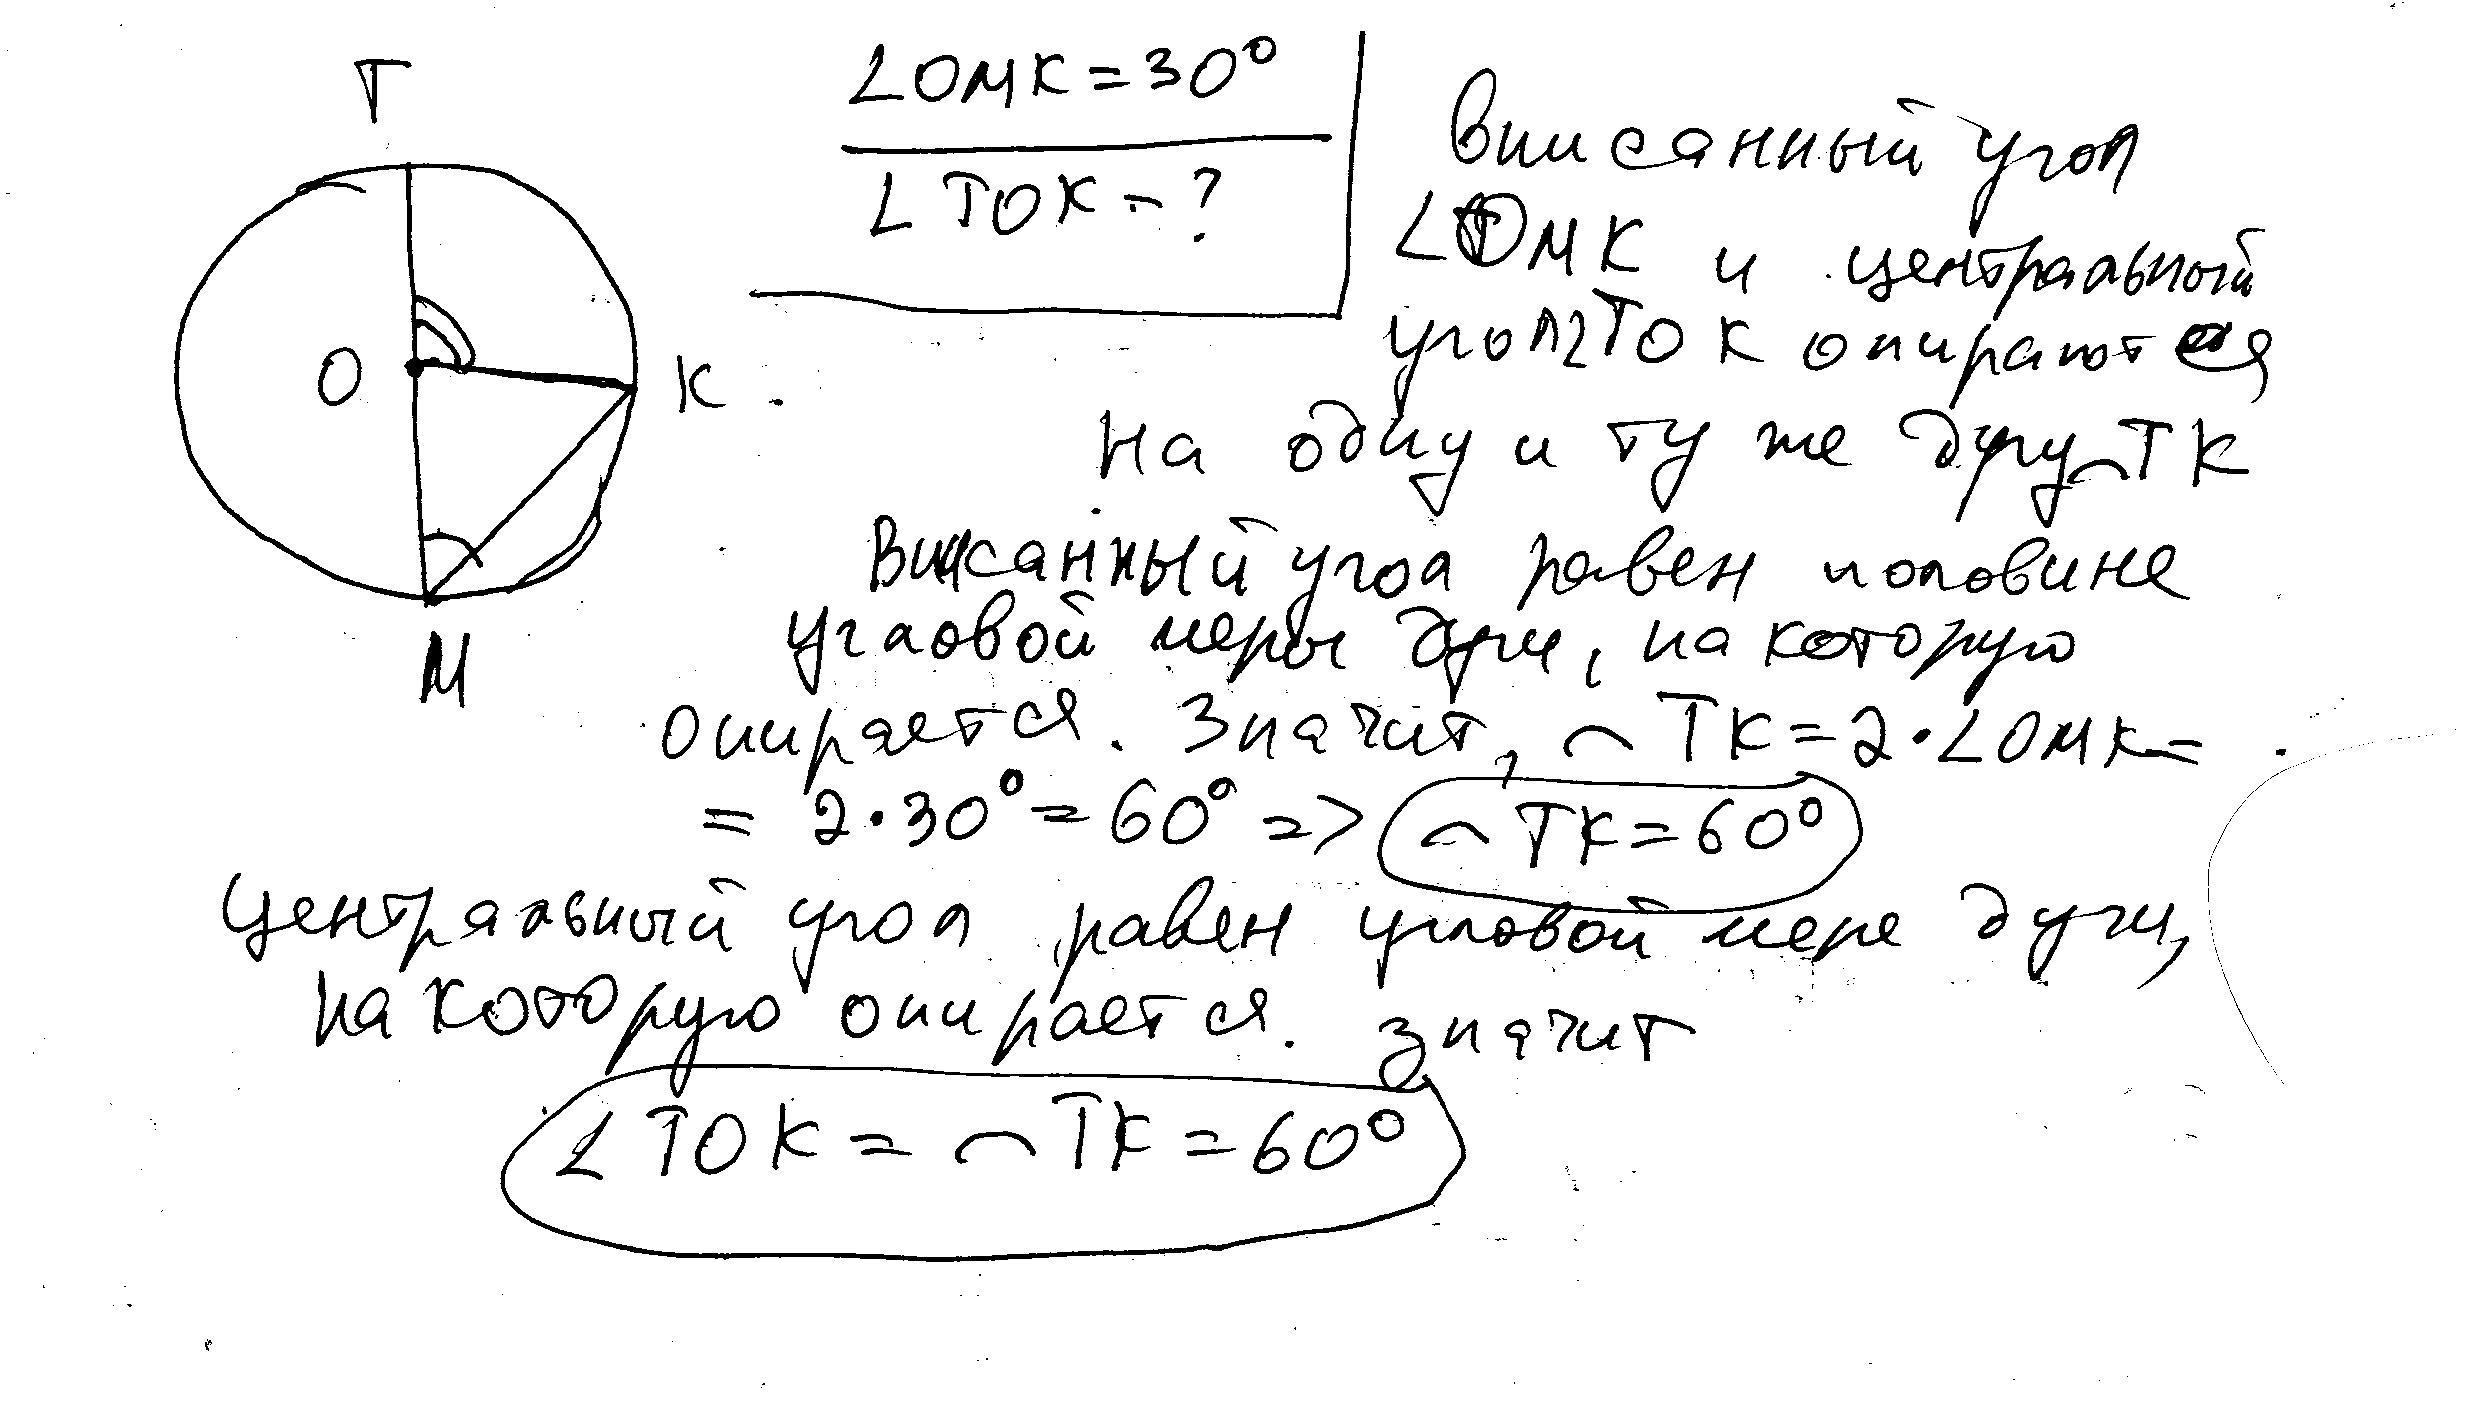 Т
О
К
М
∠ОМК=30°
∠ТОК-?
Вписанный угол
∠ОМК и центральный
угол ∠ТОК опираются
на одну и ту же дугу ⌢ТК
Вписанный угол равен половине
угловой меры дуги, на которую
опирается. Значит, ⌢ТК=2·∠ОМК=
=2·30°=60° => ⌢ТК=60°
Центральный угол равен угловой мере дуги,
на которую опирается. Значит
∠ТОК=⌢ТК=60°